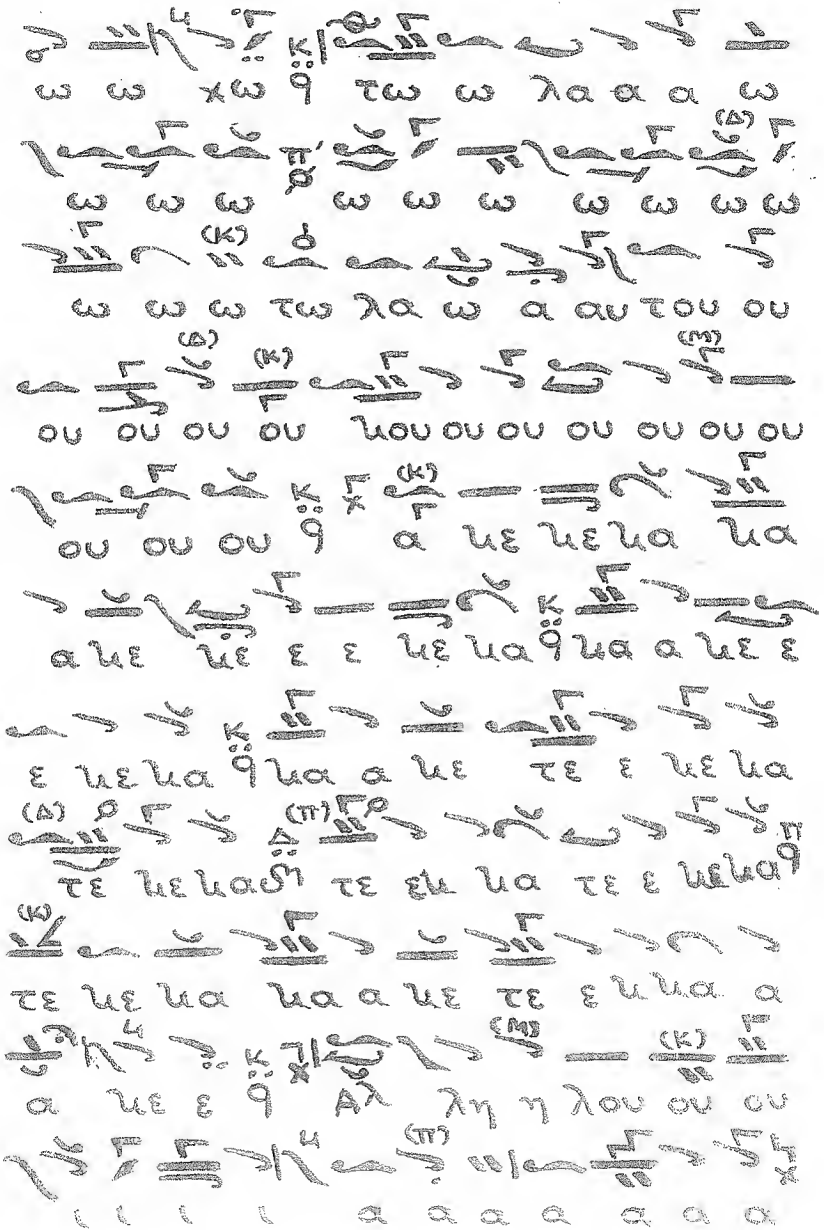 ω ω χω τω ω λα α α ω
(Δ)
ω ω ω ω ω ω ω ω ω ω
(Κ)
ω ω ω τω λα ω α αυ του ου
(Δ) (Κ) (Μ)
ου ου ου ου κου ου ου ου ου ου ου
(Κ)
ου ου ου α κε κε κα κα
α κε κε ε ε κε κα κα α κε ε
ε κε κα κα α κε τε ε κε κα
(Δ) (Π)
τε κε κα τε εκ κα τε ε κε κα
(Κ)
τε κε κα κα α κε τε ε κ κα α
(Μ) (Κ)
α κε ε Αλ λη η λου ου ου
(Π)
ι ι ι ι α α α α α α α